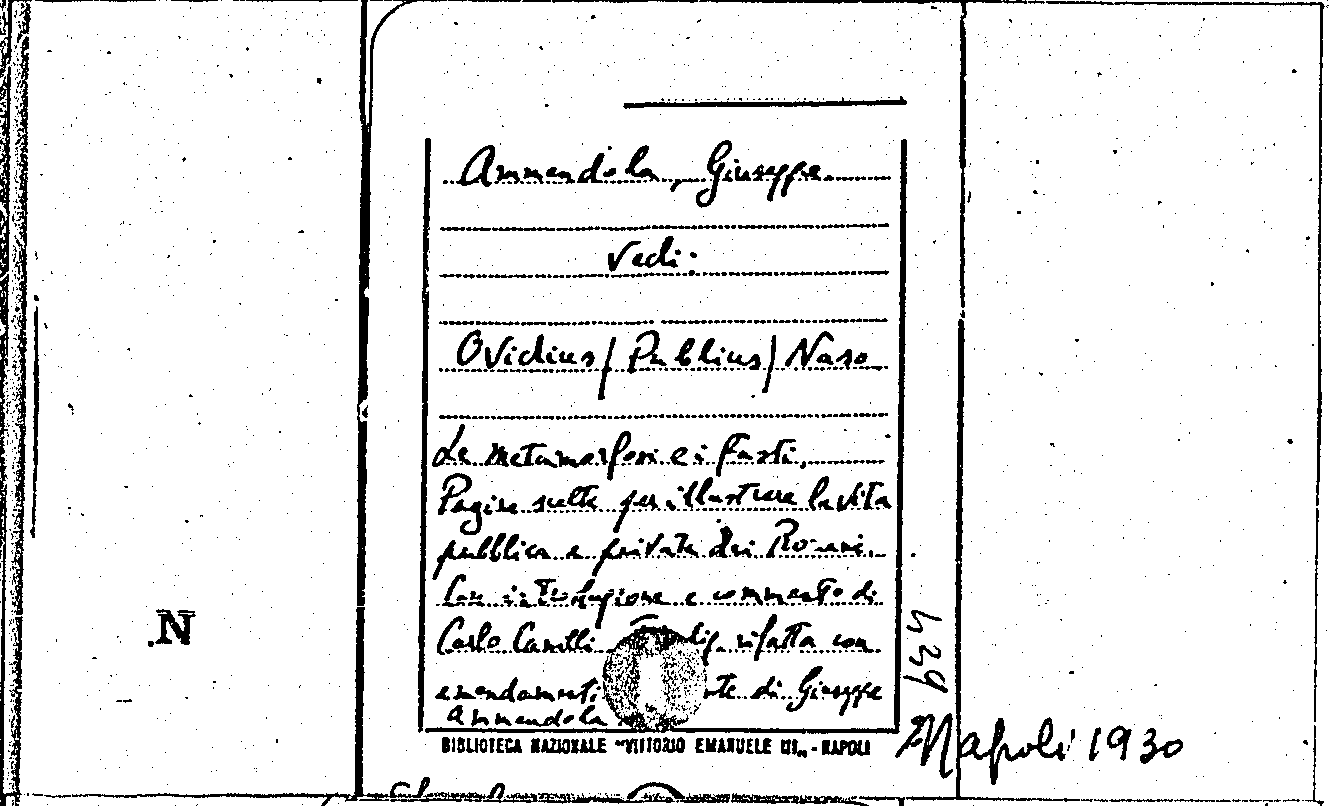 Ammendola, Giuseppe
Vedi:
Ovidius / Publius / Naso
Le metamorfosi e i Fasti.
Pagine scelte per illustrare la vita
pubblica e privata dei Romani.
Con introduzione e commento di
Carlo Canilli rifatta con
emendamenti di Giuseppe
Ammendola
BIBLIOTECA NAZIONALE "VITTORIO EMANUELE III„ - NAPOLI
Napoli 1930
439
N